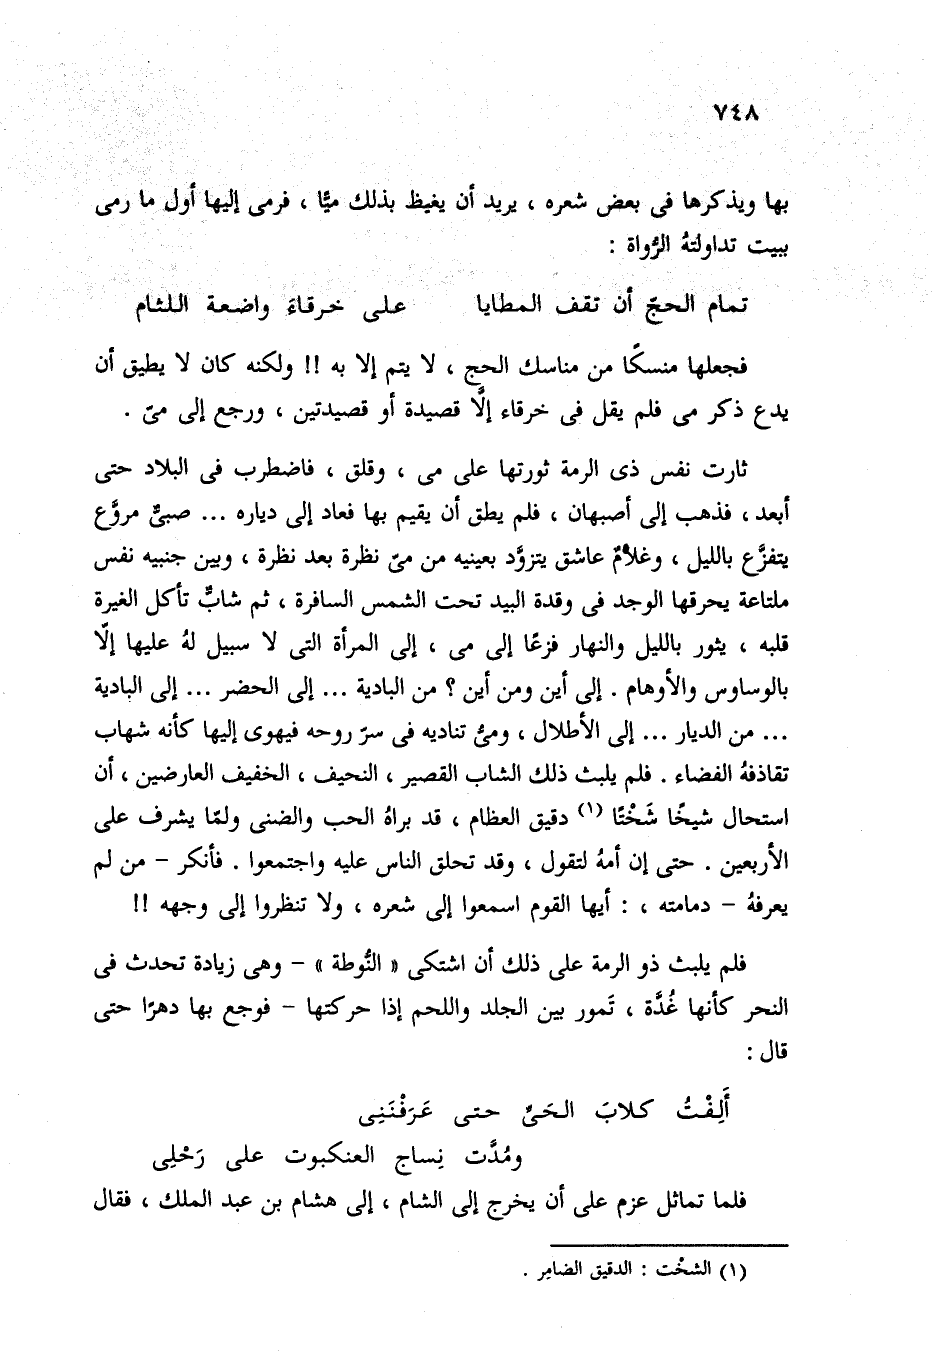 ٧٤٨
بها ويذكرها فى بعض شعره ، يريد أن يغيظ بذلك ميًّا ، فرمى إليها أول ما رمى
ببيت تداولتهُ الرُّواة :
تمام الحجّ أن تقف المطايا على خرقاءَ واضعة اللثام
فجعلها منسكًا من مناسك الحج ، لا يتم إلا به !! ولكنه كان لا يطيق أن
يدع ذكر مى فلم يقل فى خرقاء إلَّا قصيدة أو قصيدتين ، ورجع إلى مىّ .
ثارت نفس ذى الرمة ثورتها على مى ، وقلق ، فاضطرب فى البلاد حتى
أبعد ، فذهب إلى أصبهان ، فلم يطق أن يقيم بها فعاد إلى دياره ... صبىٌّ مروَّع
يتفزَّع بالليل ، وغلامٌ عاشق يتزوَّد بعينيه من مىّ نظرة بعد نظرة ، وبين جنبيه نفس
ملتاعة يحرقها الوجد فى وقدة البيد تحت الشمس السافرة ، ثم شابٌّ تأكل الغيرة
قلبه ، يثور بالليل والنهار فزعًا إلى مى ، إلى المرأة التى لا سبيل لهُ عليها إلّا
بالوساوس والأوهام . إلى أين ومن أين ؟ من البادية ... إلى الحضر ... إلى البادية
... من الديار ... إلى الأطلال ، ومىُّ تناديه فى سرّ روحه فيهوى إليها كأنه شهاب
تقاذفهُ الفضاء . فلم يلبث ذلك الشاب القصير ، النحيف ، الخفيف العارضين ، أن
استحال شيخًا شَخْتًا (١) دقيق العظام ، قد براهُ الحب والضنى ولمّا يشرف على
الأربعين . حتى إن أمهُ لتقول ، وقد تحلق الناس عليه واجتمعوا . فأنكر – من لم
يعرفهُ – دمامته ، : أيها القوم اسمعوا إلى شعره ، ولا تنظروا إلى وجهه !!
فلم يلبث ذو الرمة على ذلك أن اشتكى « النُّوطة » – وهى زيادة تحدث فى
النحر كأنها غُدَّة ، تَمور بين الجلد واللحم إذا حركتها – فوجع بها دهرًا حتى
قال :
أَلِفْتُ كلابَ الحَىِّ حتى عَرَفْنَنِى
ومُدَّت نِساج العنكبوت على رَحْلِى
فلما تماثل عزم على أن يخرج إلى الشام ، إلى هشام بن عبد الملك ، فقال
(١) الشخْت : الدقيق الضامِر .